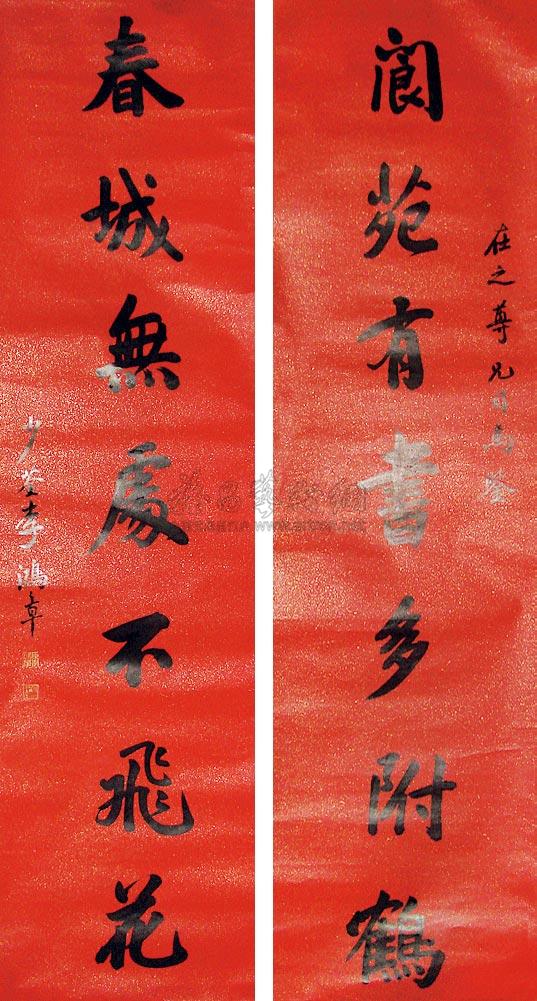 閬苑有書多附鶴
在之尊兄
春城無處不飛花
少荃李鴻章